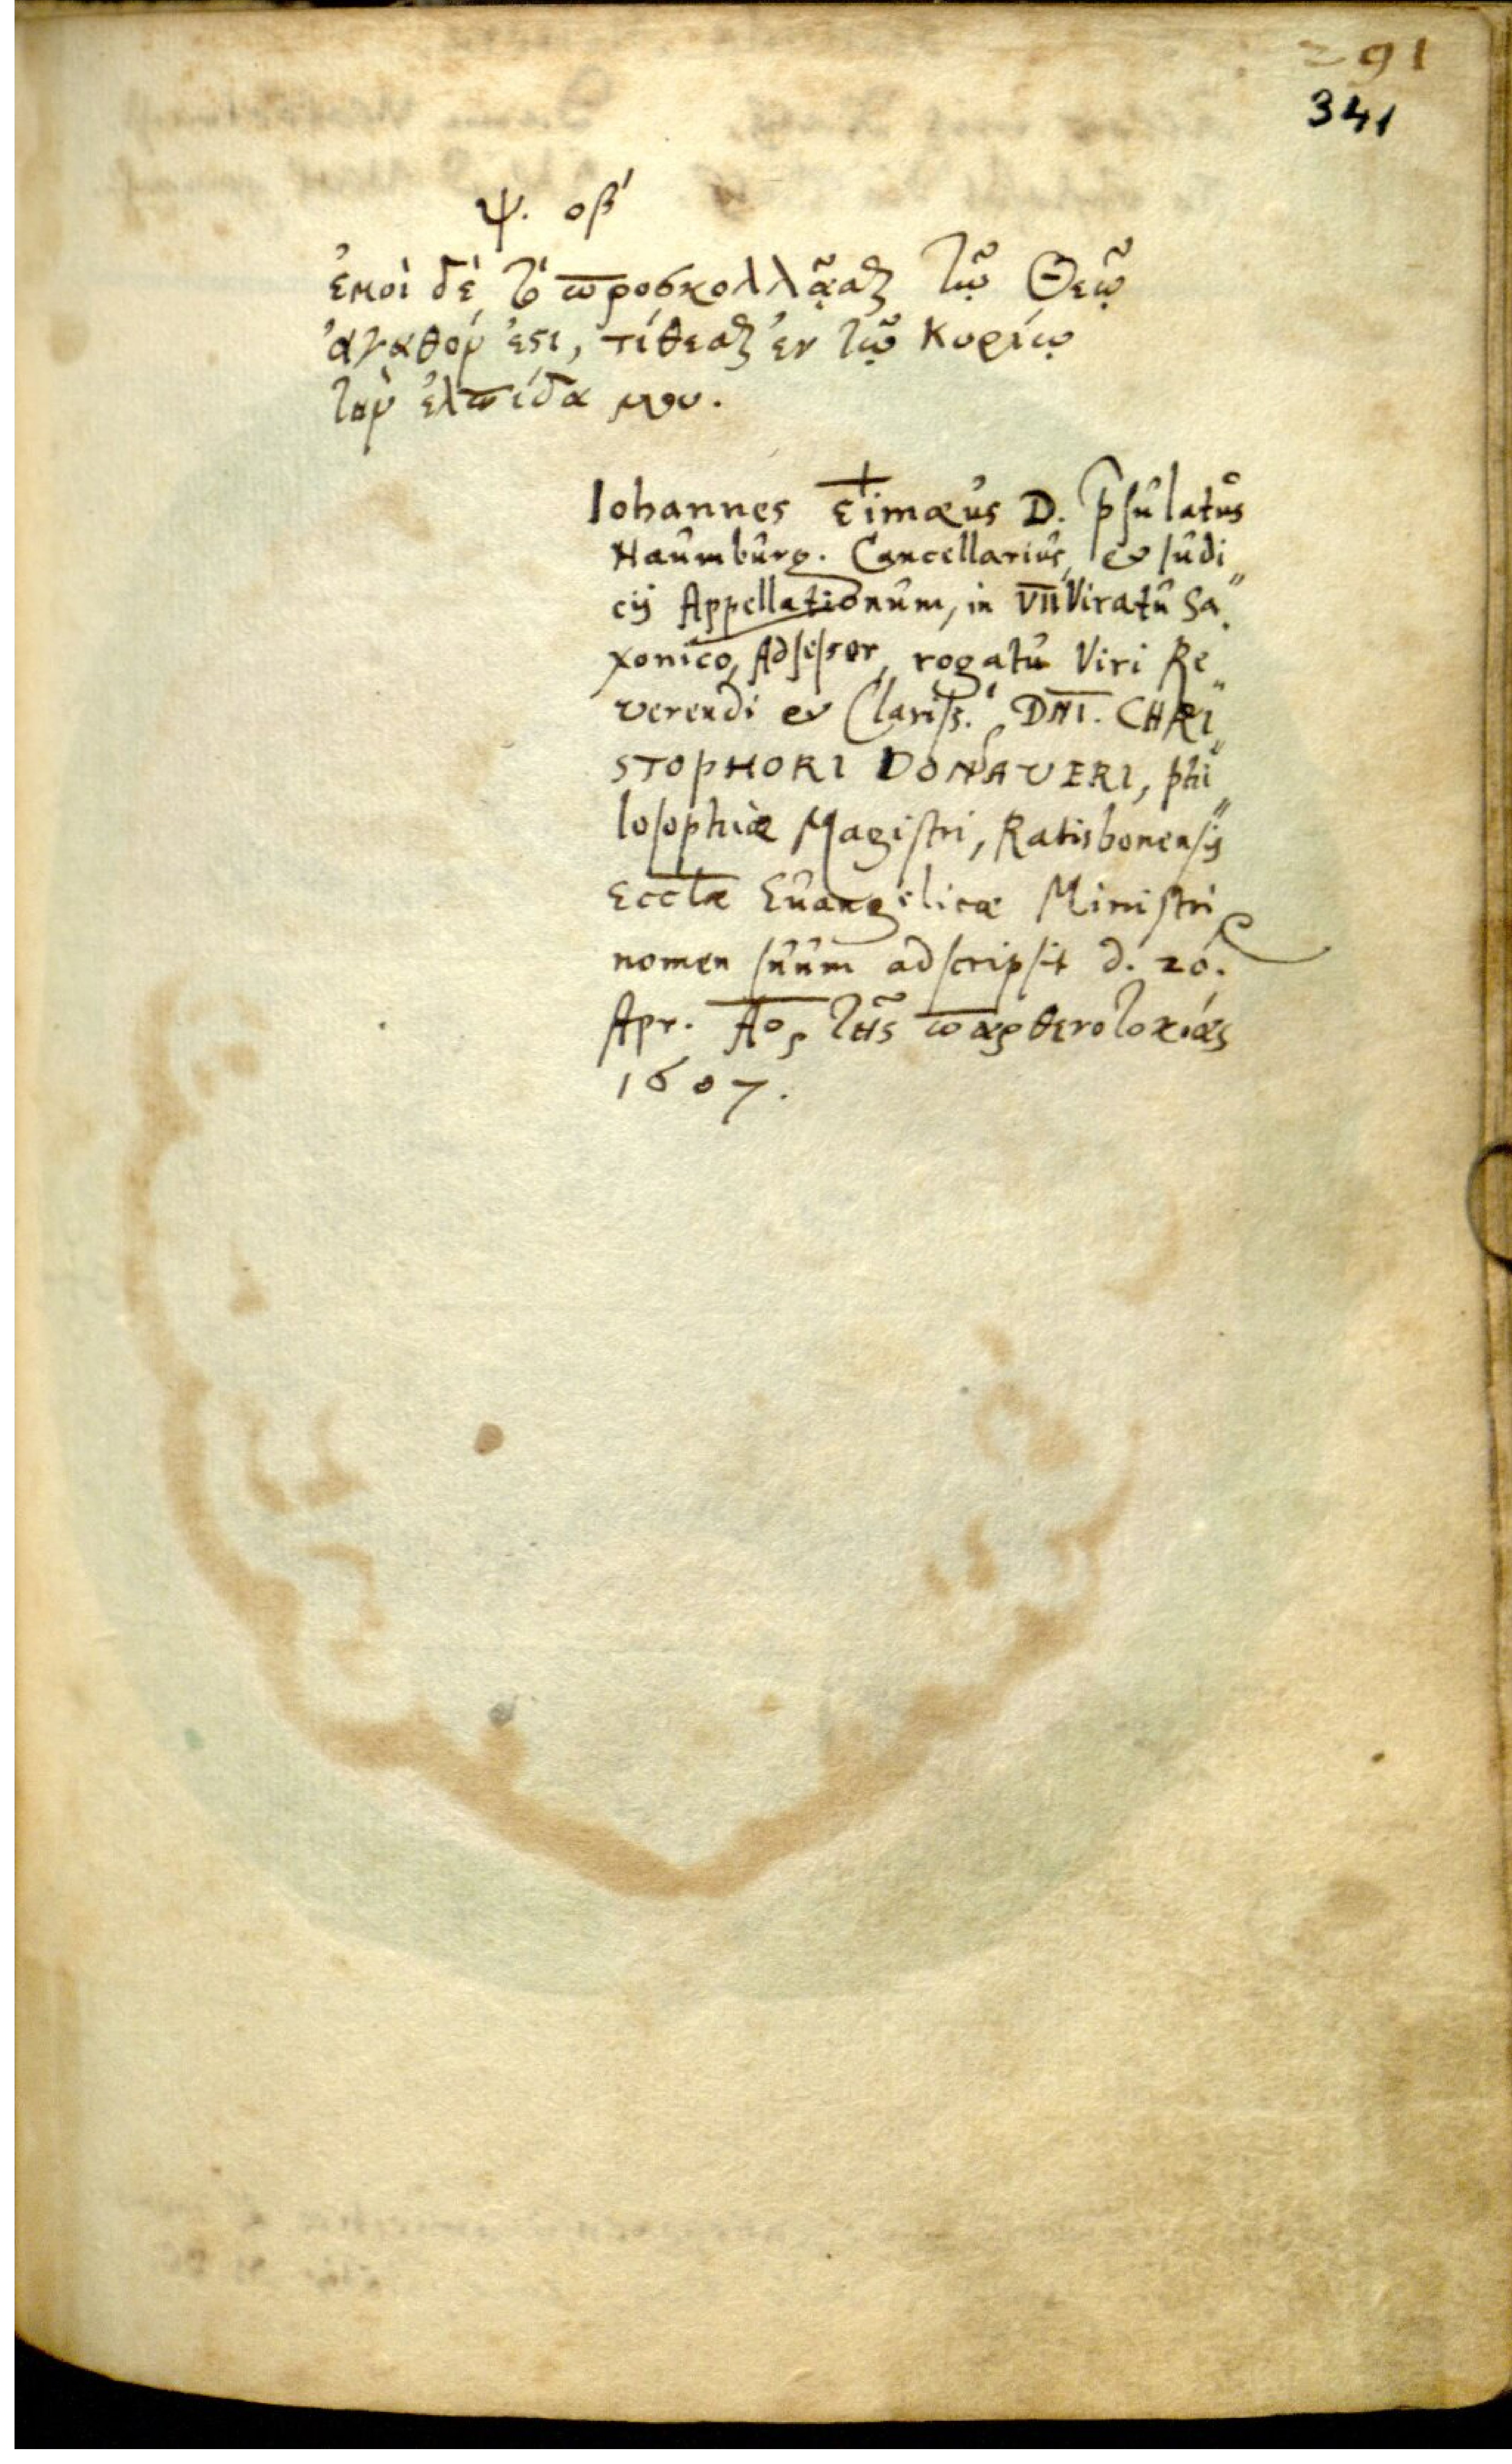 291
341
ψ. οβ'
ἐμοὶ δὲ τὸ προσκολλᾶσθαι τῷ Θεῷ
ἀγαθόν ἐστι, τίθεσθαι ἐν τῷ Κυρίῳ
τὴν ἐλπίδα μου.
Iohannes Timæus D. p̄sulatus
Naumburg. Cancellarius, et Iudi„
cij Appellationum, in VIIViratu Sa„
xonico, Adseſsor, rogatu Viri Re„
verendi et Clariſs.i DNI. CHRI„
STOPHORI DONAVERI, phi„
loſophiæ Magiſtri, Ratisbonenſis
Eccłæ Euangelicæ Miniſtri
nomen ſuum adſcripſit d. 20.
Apr. Ao, τῆς παρθενοτοκίας
1607.